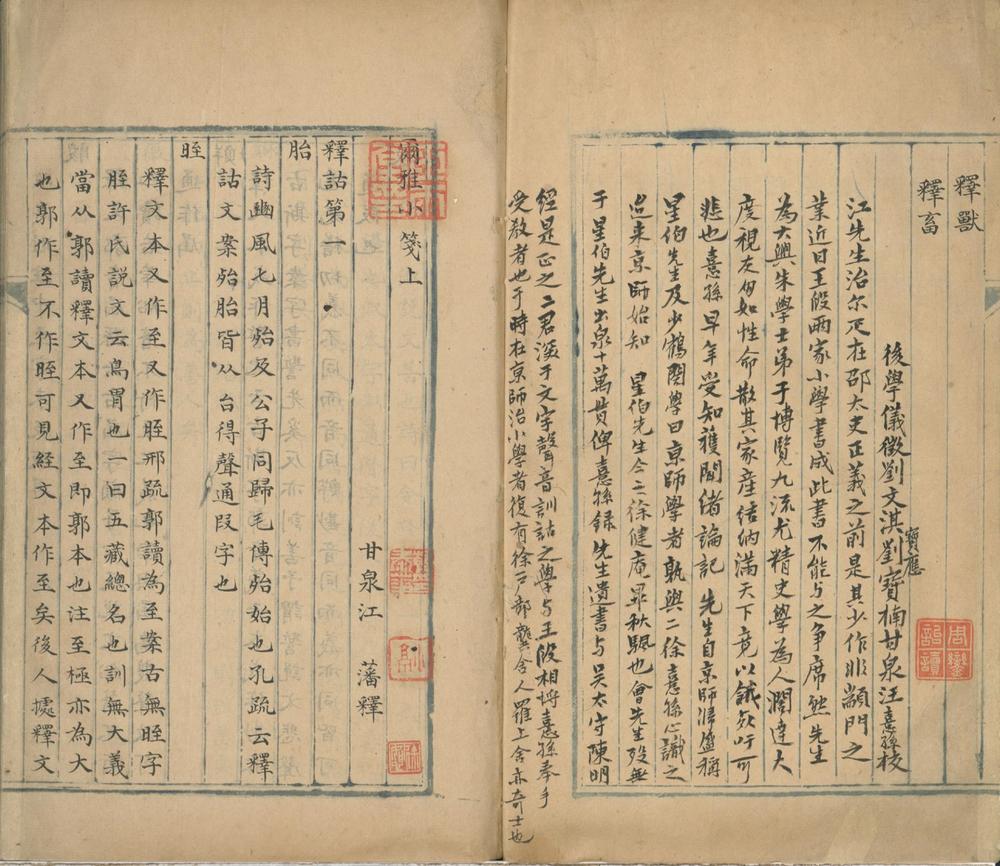 釋獸
釋畜
後學儀徵劉文淇寶應劉寶楠甘泉汪憙孫校
江先生治尔疋在邵太史正義之前是其少作非顓門之
業近日王段兩家小學書成此書不能与之争席然先生
為大興朱學士弟子博覽九流尤精史學為人闊達大
度視友朋如性命散其家產结纳满天下竟以餓死吁可
悲也憙孫早年受知獲聞绪論記先生自京師歸盛稱
星伯先生及少鶴閣學曰京師學者孰與二徐憙孫心識之
迨来京師始知 星伯先生今之徐健庵畢秋颿也會先生歿無
子星伯先生出泉十萬貫俾憙孫録 先生遺書与吴太守陳明
經是正之二君深于文字聲音訓詁之學与王段相埒憙孫奉手
受教者也于時在京師治小學者復有徐户部龔舍人羅上舍亦奇士也
爾雅小箋上
甘泉江 藩釋
釋詁第一
胎
詩豳風七月殆及公子同歸毛傳殆始也孔疏云釋
詁文案殆胎皆从台得聲通叚字也
晊
釋文本又作至又作胵邢疏郭讀為至案古無晊字
胵許氏説文云鳥胃也一曰五藏總名也訓無大義
當从郭讀釋文本又作至即郭本也注至極亦為大
也郭作至不作晊可見經文本作至矣後人據釋文